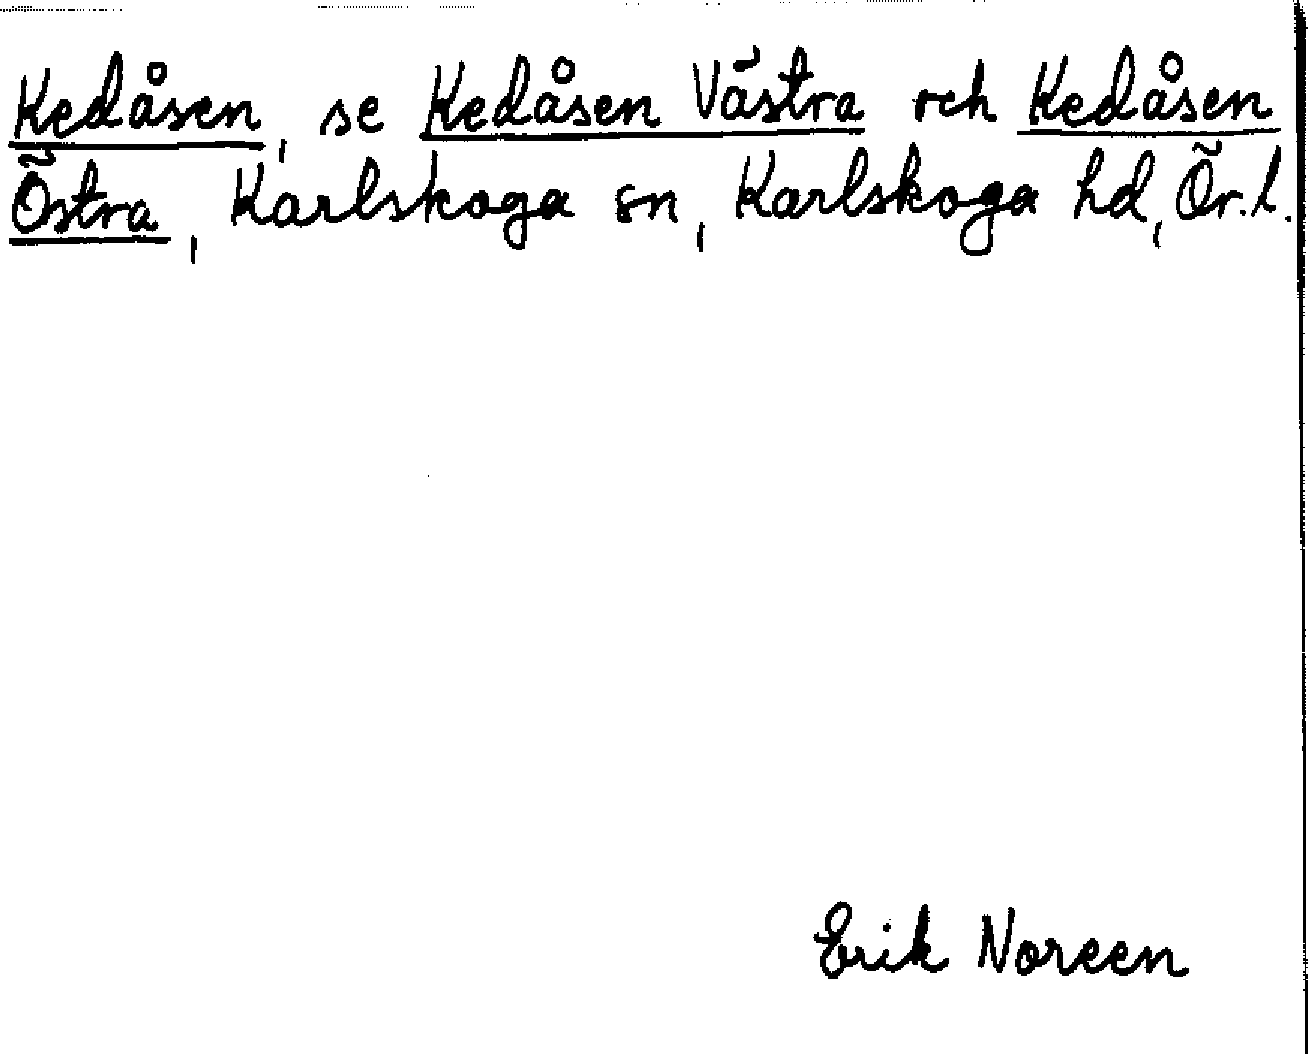 Kedåsen, se Kedåsen Västra och Kedåsen
Östra, Karlskoga sn, Karlskoga hd, Ör. l.
Erik Noreen